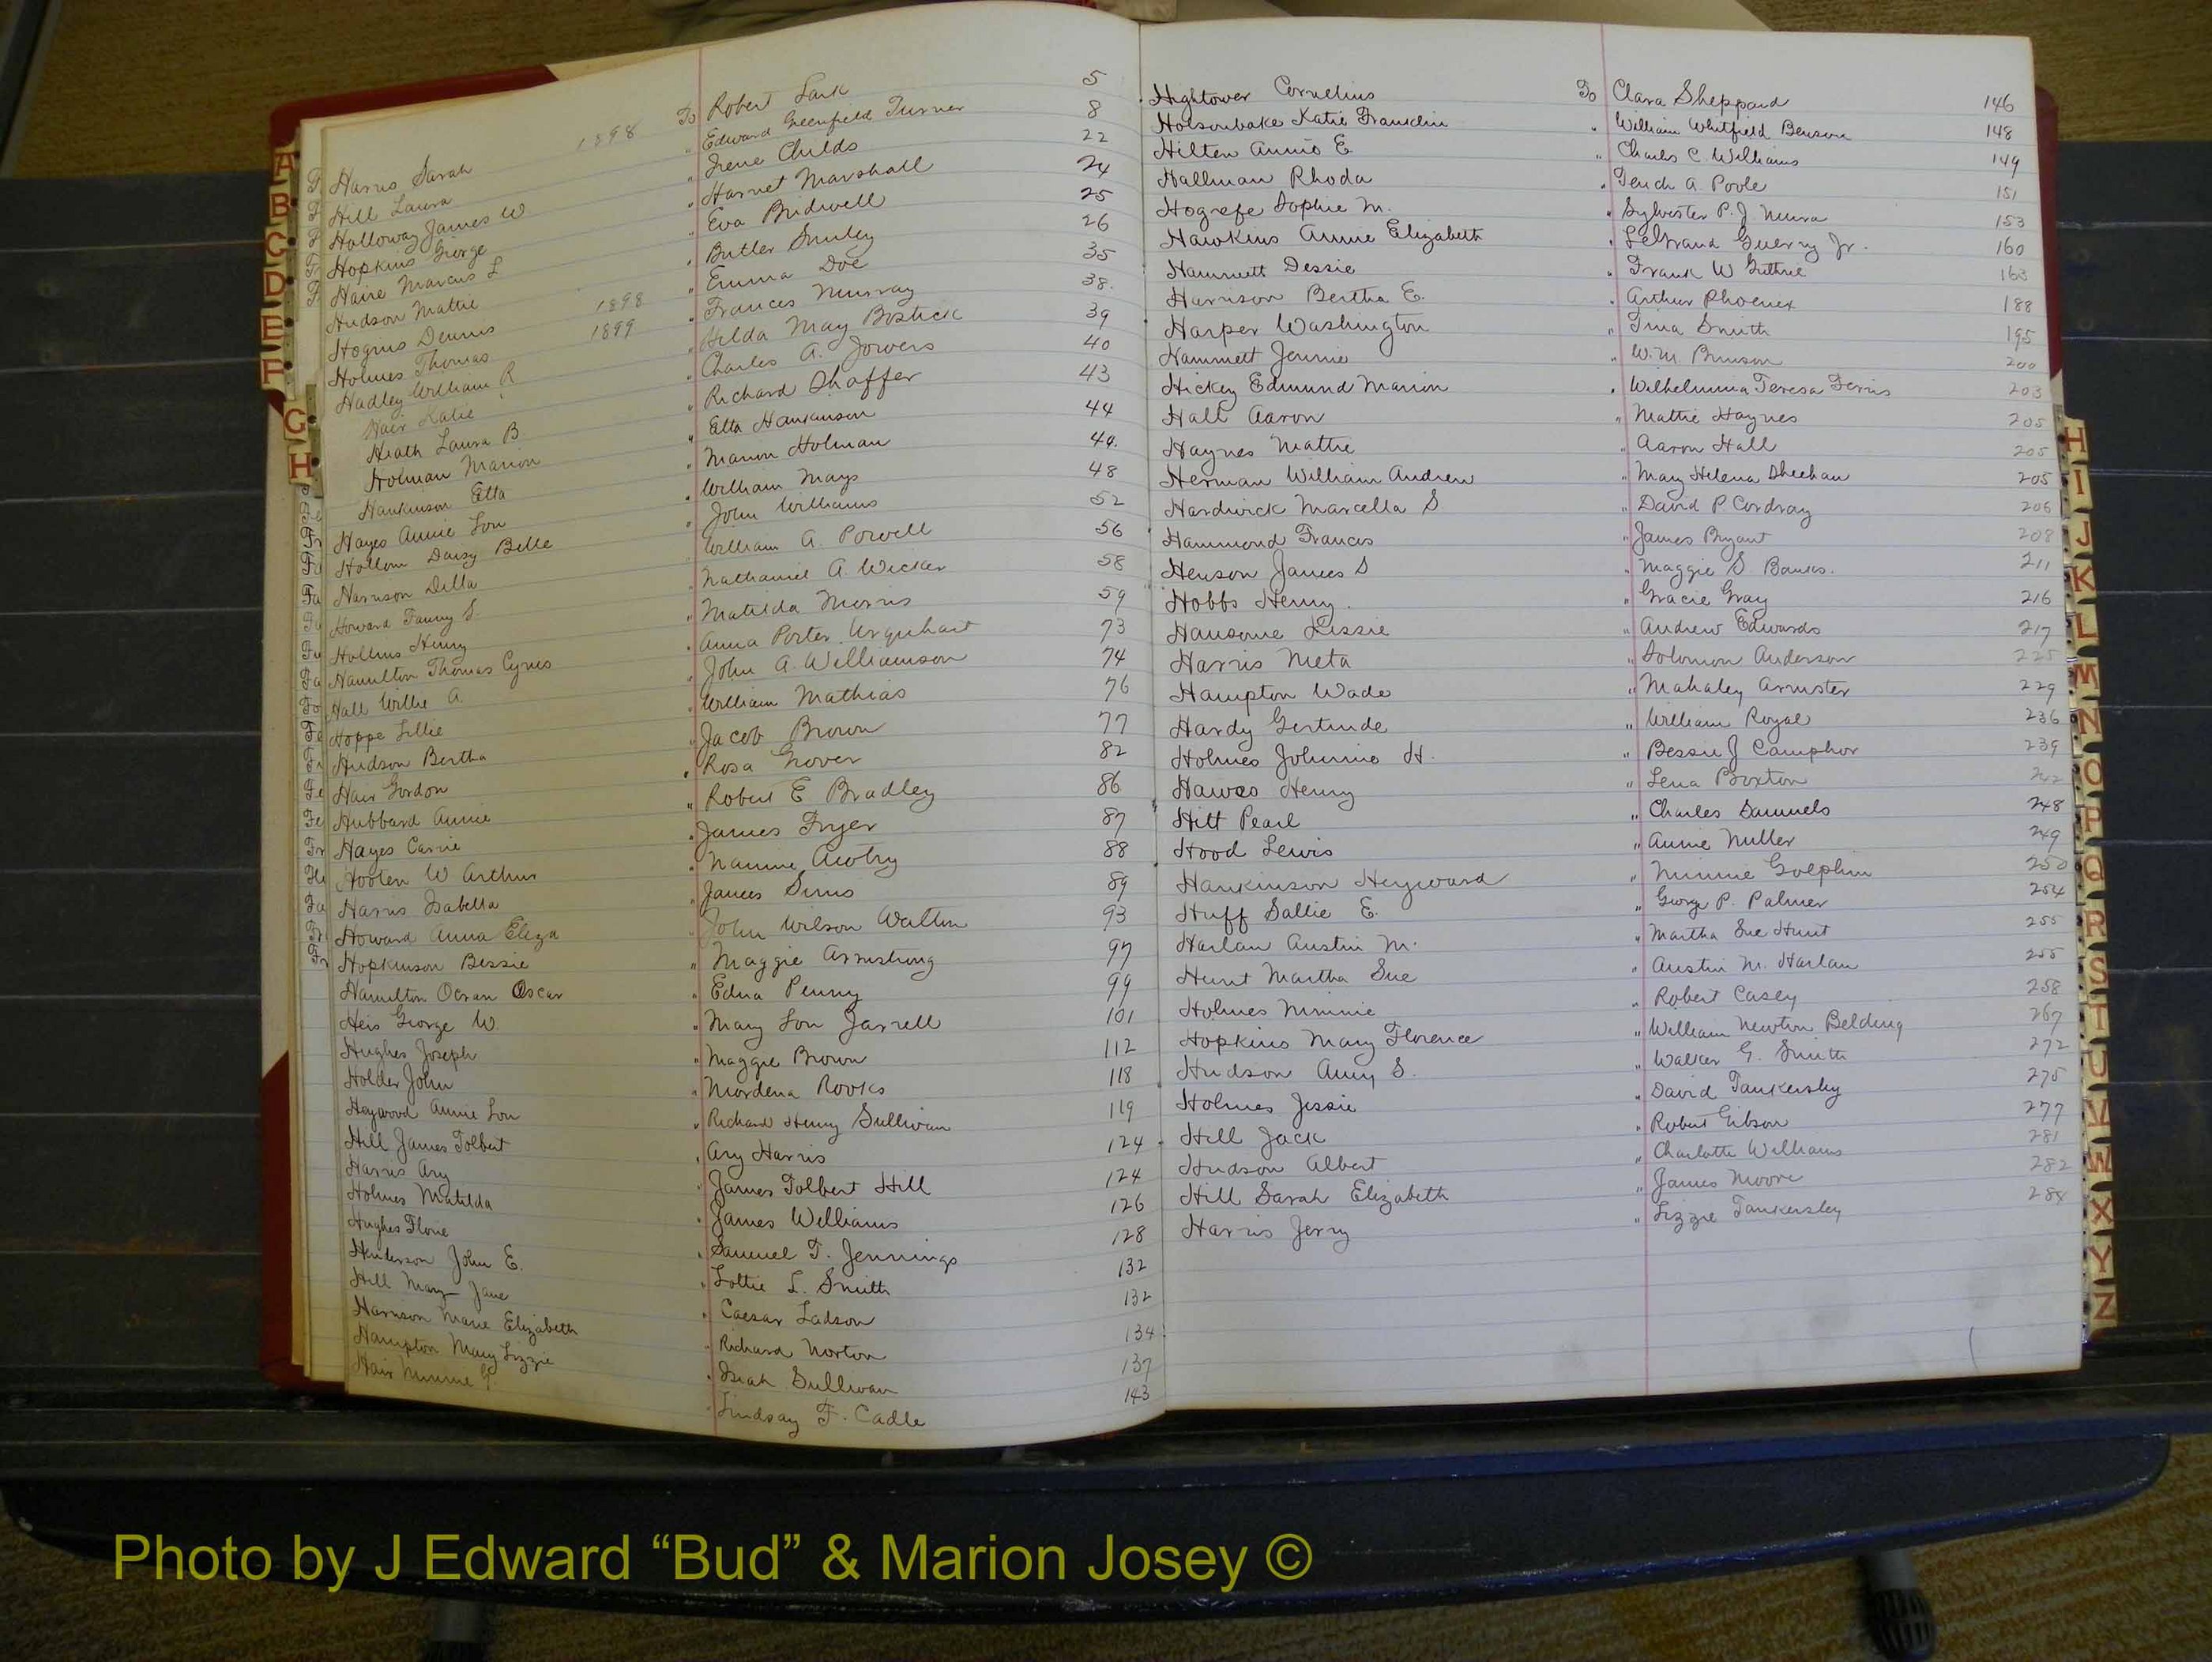 Harris Sarah 1898 To Robert Lark 5
Hill Laura " Edward Greenfield Turner 8
Holloway James W " Irene Childs 22
Hopkins George " Harriet Marshall 24
Haire Marcus L " Eva Bridwell 25
Hudson Mattie " Butler Smiley 26
Hogins Dennis 1898 " Emma Doe 35
Holmes Thomas 1899 " Frances Murray 38.
Hadley William R " Hilda May Bostick 39
Hair Katie " Charles A. Jowers 40
Heath Laura B " Richard Shaffer 43
Holman Marion " Etta Hankinson 44
Hankinson Etta " Marion Holman 44.
Hayes Annie Lou " William Mays 48
Hollom Daisy Belle " John Williams 52
Harrison Della " William A. Powell 56
Howard Fanny S. " Nathaniel A. Wicker 58
Hollins Henry " Matilda Morris 59
Hamilton Thomas Cyrus " Anna Porter Urquhart 73
Hall Willie A. " John A. Williamson 74
Hoppe Lillie " William Mathias 76
Hudson Bertha " Jacob Brown 77
Hair Gordon " Rosa Grover 82
Hubbard Annie " Robert E Bradley 86
Hayes Carrie " James Fryer 87
Hooten W Arthur " Nannie Autry 88
Harris Isabella " James Sims 89
Howard Anna Eliza " John Wilson Walton 93
Hopkinson Bessie " Maggie Armstrong 97
Hamilton Ocran Oscar " Edna Penny 99
Heis George W. " Mary Lou Jarrell 101
Hughes Joseph " Maggie Brown 112
Holder John " Mordena Rooks 118
Heywood Annie Lou " Richard Henry Sullivan 119
Hill James Tolbert " Ary Harris 124
Harris Ary " James Tolbert Hill 124
Holmes Matilda " James Williams 126
Hughes Florie " Samuel T. Jennings 128
Henderson John E. " Lottie L. Smith 132
Hill Mary Jane " Caesar Ladson 132
Harrison Marie Elizabeth " Richard Norton 134
Hampton Mary Lizzie " Isiah Sullivan 137
Hair Minnie G. " Lindsay F. Cadle 143
Hightower Cornelius To Clara Sheppard 146
Holsonbake Katie Franklin " William Whitfield Benson 148
Hilten Annie E " Charles C. Williams 149
Hallman Rhoda " Tench A. Poole 151
Hogrefe Sophie M. " Sylvester P. J. Mura 153
Hawkins Annie Elizabeth " LeGrand Guerry Jr. 160
Hammett Dessie " Frank W Guthrie 163
Harrison Bertha E. " Arthur Phoenix 188
Harper Washington " Tina Smith 195
Hammett Jennie " W. M. Brunson 200
Hickey Edmund Marion " Wilhelmina Teresa Ferris 203
Hall Aaron " Mattie Haynes 205
Haynes Mattie " Aaron Hall 205
Herman William Andrew " Mary Helena Sheehan 205
Hardwick Marcella S. " David P. Cordray 206
Hammond Frances " James Bryant 208
Henson James S " Maggie S. Banks. 211
Hobbs Henry. " Gracie Gray 216
Hansome Lissie " Andrew Edwards 217
Harris Meta " Solomon Anderson 225
Hampton Wade " Mahaley Armster 229
Hardy Gertrude " William Royal 236
Holmes Johnnie H. " Bessie J Camphor 239
Hawes Henry " Lena Boxton 242
Hitt Pearl " Charles Samuels 248
Hood Lewis " Annie Miller 249
Hankinson Heyward " Minnie Golphin 250
Huff Sallie E. " George P. Palmer 254
Harlan Austin M. " Martha Sue Hunt 255
Hunt Martha Sue " Austin M. Harlan 255
Holmes Minnie " Robert Casey 258
Hopkins Mary Florence " William Newton Belding 267
Hudson Amy S. " Walker G. Smith 272
Holmes Jessie " David Tankersley 275
Hill Jack " Robert Gibson 277
Hudson Albert " Charlotte Williams 281
Hill Sarah Elizabeth " James Moore 282
Harris Jerry " Lizzie Tankersley 288
A
B
C
D
E
F
G
H
H
I
J
K
L
M
N
O
P
Q
R
S
T
U
V
W
X
Y
Z
Photo by J Edward “Bud” & Marion Josey ©